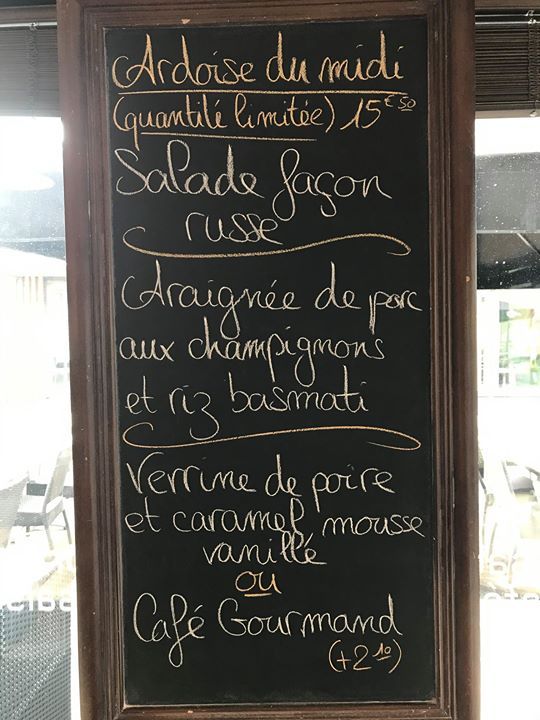 Ardoise du midi
(quantité limitée) 15€50
Salade façon
russe
Araignée de porc
aux champignons
et riz basmati
Verrine de poire
et caramel mousse
vanille
ou
Café Gourmand
(+2 10)